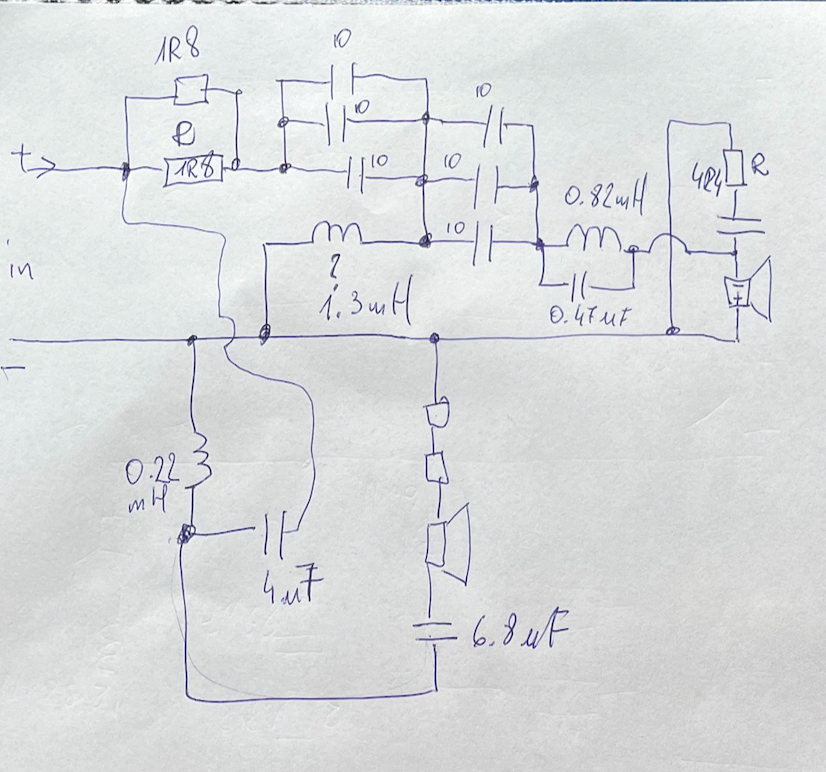 1R8
10
R
10
10
+
1R8
10
10
10
0.82mH
4R4
R
in
?
1.3mH
0.47uF
+
-
0.22
mH
4uF
6.8uF